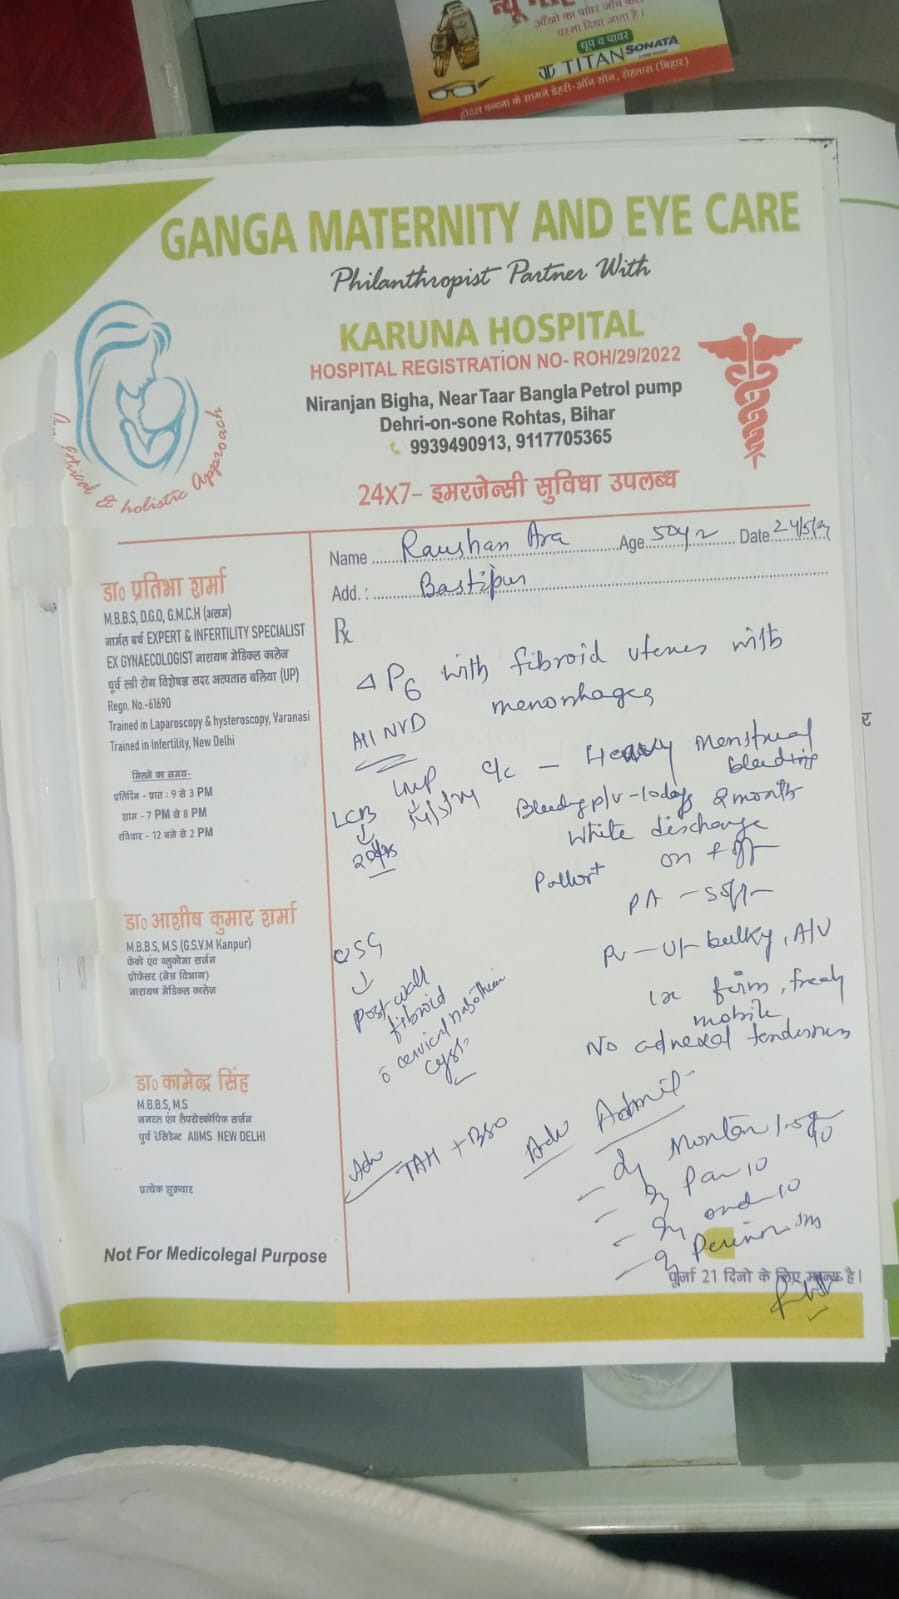 आँखो का पॉवर जाँच कर
चश्मा दिया जाता है।
धूप व पावर
TITAN SONATA
होटल वन्दना के सामने डेहरी-ऑन सोन, रोहतास (बिहार)
GANGA MATERNITY AND EYE CARE
Philanthropist Partner With
KARUNA HOSPITAL
HOSPITAL REGISTRATION NO- ROH/29/2022
Niranjan Bigha, Near Taar Bangla Petrol pump
Dehri-on-sone Rohtas, Bihar
9939490913, 9117705365
24X7- इमरजेन्सी सुविधा उपलब्ध
& holistic Approach
Name Raushan Ara Age 50yr Date 24/5/
Add. : Bastipur
डा० प्रतिभा शर्मा
M.B.B.S, D.G.O, G.M.C.H (असम)
नार्मल बर्थ EXPERT & INFERTILITY SPECIALIST
EX GYNAECOLOGIST नारायण मेडिकल कालेज
पूर्व स्त्री रोग विशेषज्ञ सदर अस्पताल बलिया (UP)
Regn. No.-61690
Trained in Laparoscopy & hysteroscopy, Varanasi
Trained in Infertility, New Delhi
मिलने का समय:-
प्रतिदिन - प्रातः : 9 से 3 PM
शाम - 7 PM से 8 PM
रविवार - 12 बजे से 2 PM
डा० आशीष कुमार शर्मा
M.B.B.S, M.S (G.S.V.M Kanpur)
फेको एवं ग्लुकोमा सर्जन
प्रोफेसर (नेत्र विभाग)
नारायण मेडिकल कालेज
डा० कामेन्द्र सिंह
M.B.B.S, M.S
जनरल एवं लैपरोस्कोपिक सर्जन
पूर्व रेसिडेन्ट AIIMS NEW DELHI
प्रत्येक शुक्रवार
Not For Medicolegal Purpose
Rx
P6 with fibroid uterus with
menorrhages
All NVD
LMP
c/c - Heavy menstrual
bleeding
LCB
Bleeding p/v - 10 days 2 month
White discharge
on + off
Pallor+
PA - soft
USG
Post wall
fibroid
c cervical nabothian
cyst
Pv - Ut bulky, A/V
Cx firm, freely
mobile
No adnexal tenderness
Adv TAH + BSO
Adv Admit
Pan
पूर्जा 21 दिनो के लिए मान्य है।